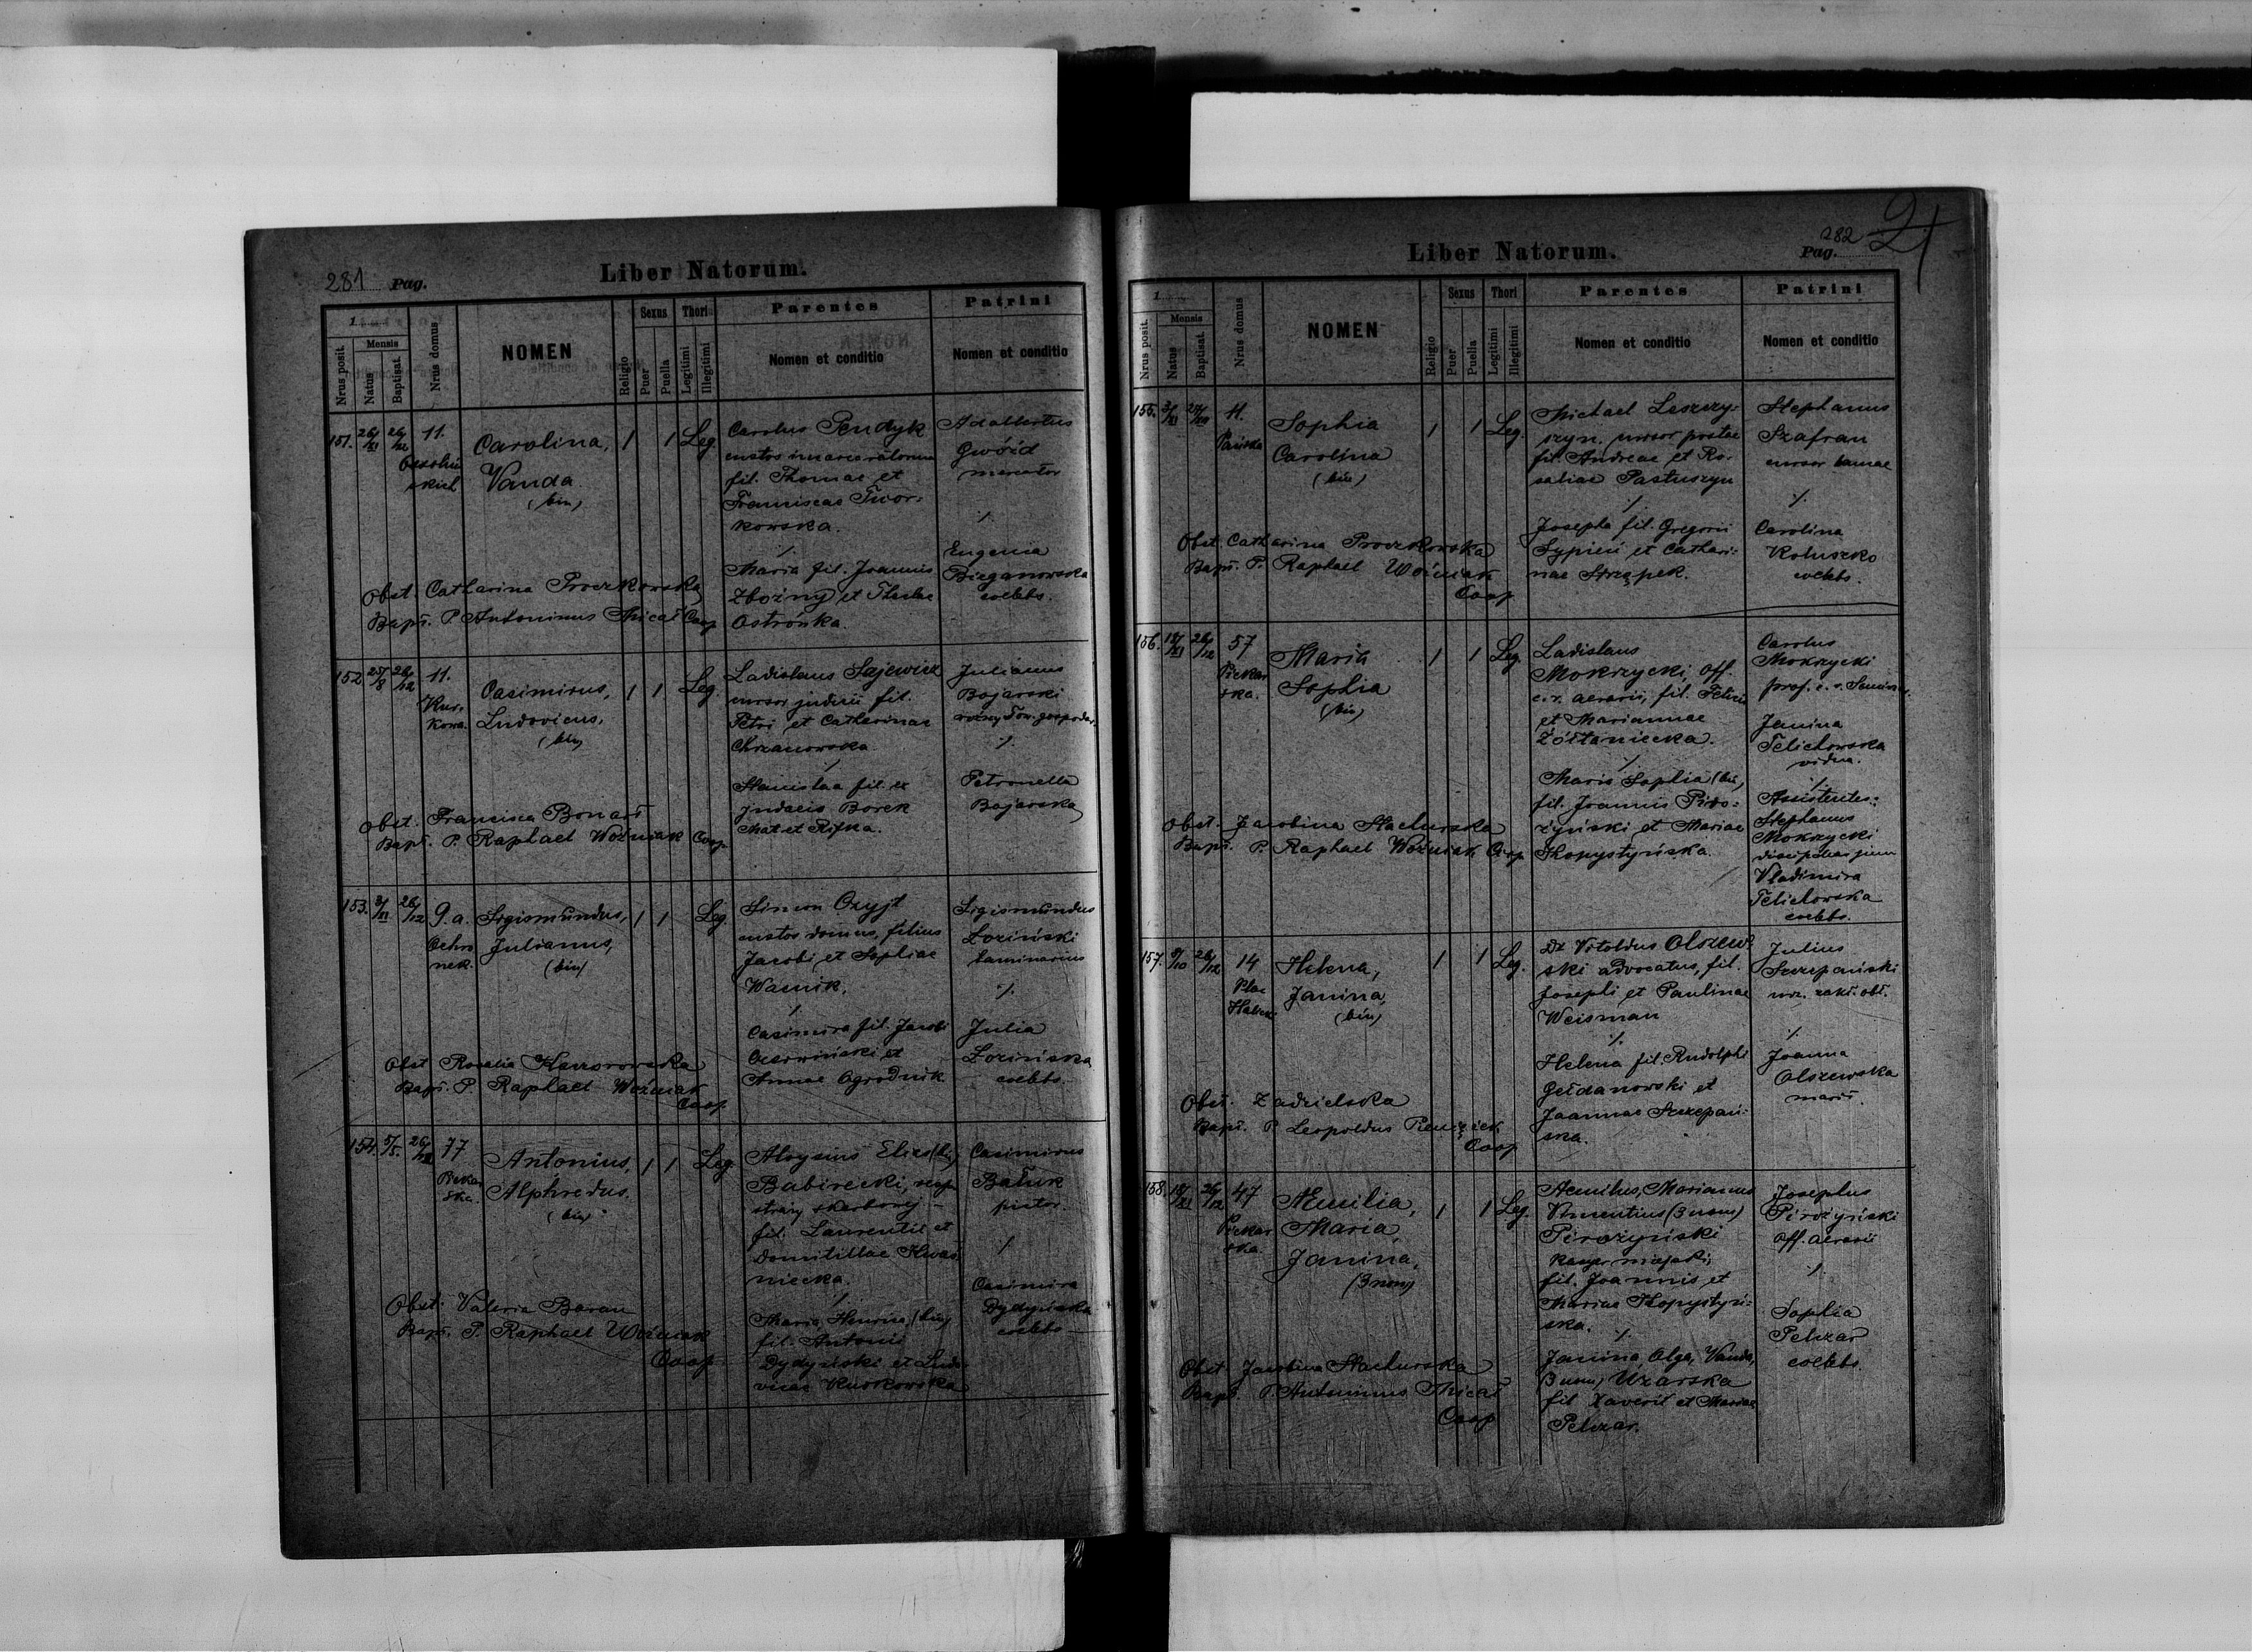 281 Pag.
Liber Natorum.
1.
Nrus posit.
Mensis
Natus
Baptisat.
Nrus domus
NOMEN
Religio
Sexus
Puer
Puella
Thori
Legitimi
Illegitimi
Parentes
Nomen et conditio
Patrini
Nomen et conditio
151. 26/XI 26/12 11.
Carolina,
Vanda
(bin)
1 1 Leg.
Carolus Pendyk
custos
fil. Thomae et
Franciscae Twor-
kowska.
./.
Maria fil. Joannis
Zbożny et Theclae
Ostrówka.
Adalbertus
Gwóźd
mercator
./.
Eugenia
Bieganowska
coelebs.
Obst. Catharina Proczkowska
Bapt. P. Antoninus Coop.
152 25/8 26/12 11.
Kur-
kowa.
Casimirus,
Ludovicus,
(bin)
1 1 Leg.
Ladislaus Sajewicz
cursor judicii fil.
Petri et Catharinae
Chrzanowska.
/
Stanislaa fil. ex
judaeis Borek
Mat et Rifka.
Julianus
Bojarski
woźny Tow. gospodar.
./.
Petronella
Bojarska
Obst. Francisca Bonar
Bapt. P. Raphael Woźniak Coop.
153. 3/XI 26/12 9.a.
Ochro
nek.
Sigismundus,
Julianus,
(bin)
1 1 Leg.
Simon Czyjt
custos domus, filius
Jacobi et Sophiae
Wasnik.
/
Casimira fil. Jacobi
et
Annae Ogrodnik
Sigismundus
Łoziński
laminarius
./.
Julia
Łozińska
coelebs.
Obst Rosalia
Bapt. P. Raphael Woźniak
Coop.
154. 5/5. 26/12 77
Piekar
ska.
Antonius,
Alphredus.
(bin)
1 1 Leg.
Aloysius (bin)
Babirecki, resp.
straży skarbowej
fil. Laurentii et
Domitillae Kwaś
niecka.
/
Maria, Henrica, (bin)
fil. Antonii
Dydyński et Ludo
vicae Kurkowska
Casimirus
Batuk
pictor.
/
Casimira
Dydyńska
coelebs
Obst. Valeria Baran
Bapt. P. Raphael Woźniak
Coop.
282
Pag.
21
Liber Natorum.
1.
Nrus posit.
Mensis
Natus
Baptisat.
Nrus domus
NOMEN
Religio
Sexus
Puer
Puella
Thori
Legitimi
Illegitimi
Parentes
Nomen et conditio
Patrini
Nomen et conditio
155. 11.
Pańska
Sophia
Carolina
(bin)
1 1 Leg.
Michael Leszczy-
szyn. cursor postae
fil. Andreae et Ro-
saliae Pastuszyn
./.
Josepha fil. Gregorii
et Cathari-
nae Strzępek.
Stephanus
Szafran
cursor
./.
Carolina
Kotuszko
coelebs.
Obst. Catharina Proczkowska
Bapt. P. Raphael Woźniak
Coop
156. 26/12 57
Piekar
ska.
Maria
Sophia
(bin)
1 1 Leg.
Ladislaus
Mokrzycki, off.
c. r. aerarii, fil. Felicis
et Mariannae
Żółtaniecka.
./.
Maria Sophia (bin)
fil. Joannis Piro-
żyński et Mariae
Skopystyńska.
Carolus
Mokrzycki
prof. c. r. Semin.
Janina
Telichowska
vidua.
./.
Assistentes:
Stephanus
Mokrzycki
discipulus gimn
Vladimira
Telichowska
coelebs.
Obst. Jacobina Stachurska
Bapt. P. Raphael Woźniak Coop
157. 9/10 26/12 14
Plac
Halick
Helena,
Janina,
(bin)
1 1 Leg.
Dr Vitoldus Olszew-
ski advocatus, fil.
Josephi et Paulinae
Weisman
./.
Helena fil. Rudolphi
Gełdanowski et
Joannae Szczepań-
ska.
Julius
Szczepański
urz. zakł. obł.
./.
Joanna
Olszewska
marit.
Obst. Zadzielska
Bapt. P. Leopoldus
Coop
158. 26/12 47
Piekar
ska.
Aemilia,
Maria
Janina,
(3 nom)
1 1 Leg.
Aemilius, Marianus
Vincentius (3 nom)
Pirożyński
miejski,
fil. Joannis et
Mariae Skopystyń-
ska.
./.
Janina, Olga, Vanda,
(3 nom) Uzarska
fil Xaverii et Mariae
Pelczar.
Josephus
Pirożyński
off. aerarii
./.
Sophia
Pelczar
coelebs.
Obst Jacobina Stachurska
Bapt. P. Antoninus
Coop